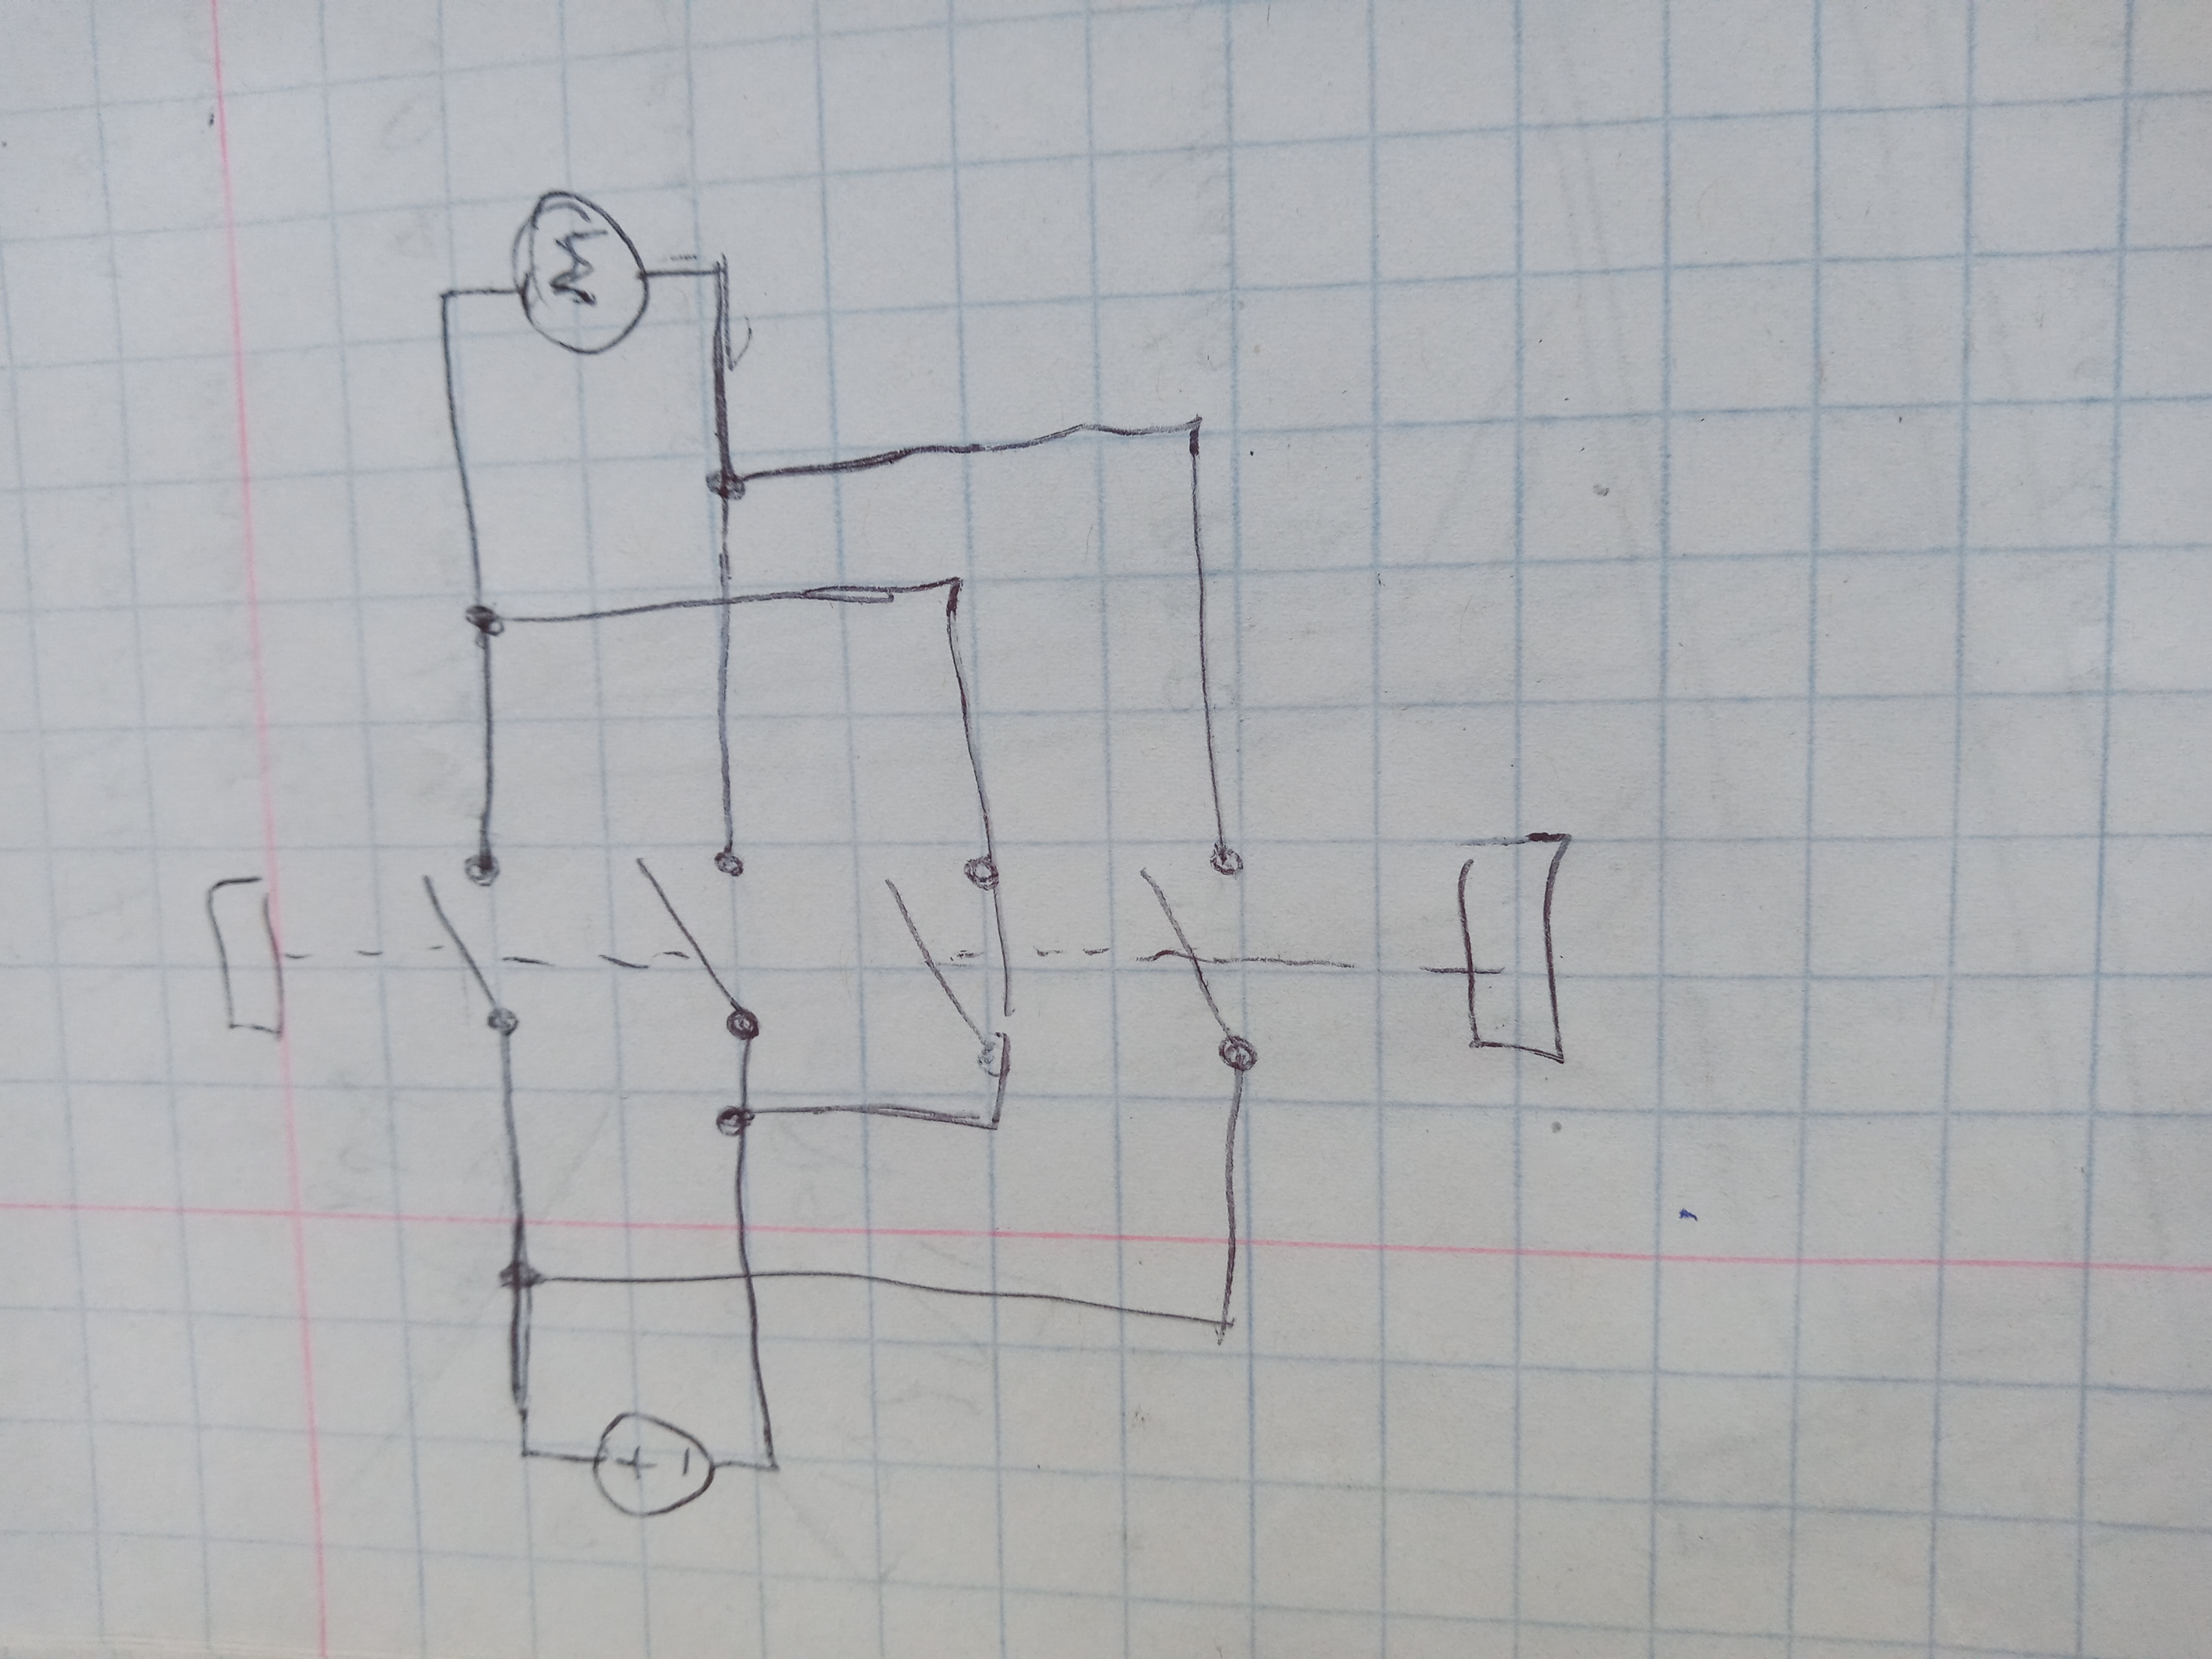 +
M
-